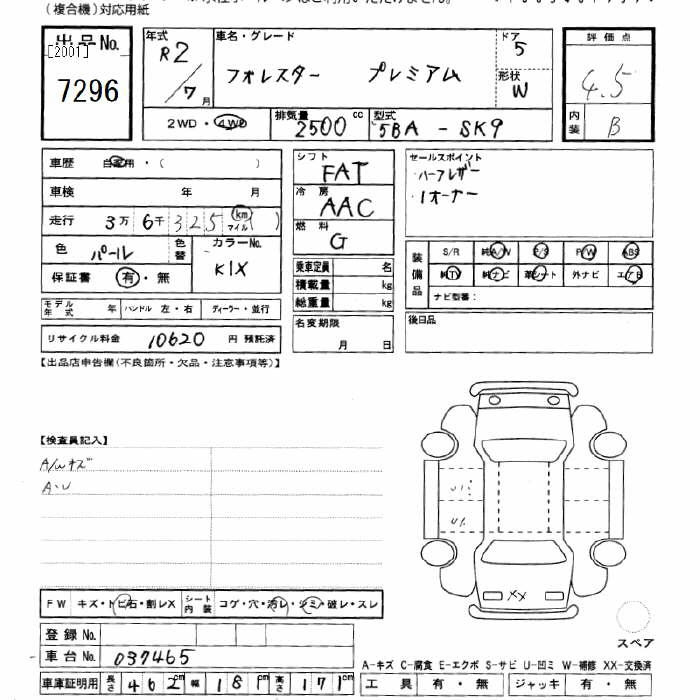 (複合機)対応用紙
出品No.
[2001]
7296
年式 R2/7月
車名・グレード
フォレスター プレミアム
ドア 5
形状 W
評価点
4.5
内装 B
2WD・4WD
排気量 2500 cc
型式 5BA - SK9
車歴 自家用・( )
車検 年 月
走行 3万6千325 (km マイル)( )
色 パール
色替
カラーNo. K1X
保証書 有・無
モデル年式 年 ハンドル 左・右 ディーラー・並行
リサイクル料金 10620 円 預託済
シフト FAT
冷房 AAC
燃料 G
乗車定員 名
積載量 kg
総重量 kg
名変期限
月 日
セールスポイント
・ハーフレザー
・1オーナー
装備品
S/R 純A/W P/S P/W ABS
純TV 純ナビ 革シート 外ナビ エアB
ナビ型番:
後日品
【出品店申告欄(不良箇所・欠品・注意事項等)】
【検査員記入】
A/Wキズ
A・U
XX
FW キズ・トビ石・割レX シート内装 コゲ・穴・汚レ・シミ・破レ・スレ
登録No.
車台No. 037465
車庫証明用 長さ 462cm 幅 181cm 高さ 171cm
スペア
A-キズ C-腐食 E-エクボ S-サビ U-凹ミ W-補修 XX-交換済
工具 有・無 ジャッキ 有・無